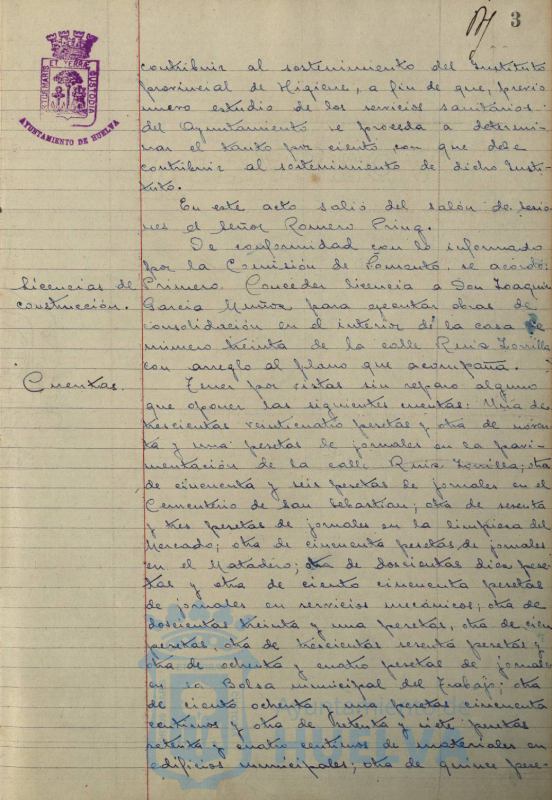 3
PORTUS MARIS ET TERRAE CUSTODIA
AYUNTAMIENTO DE HUELVA
contribuir al sostenimiento del Instituto
provincial de Higiene, a fin de que, previo
nuevo estudio de los servicios sanitarios
del Ayuntamiento se proceda a determi-
nar el tanto por ciento con que debe
contribuir al sostenimiento de dicho Insti-
tuto.
En este acto salió del salón de sesio-
nes el señor Romero
De conformidad con lo informado
por la Comisión de Fomento, se acordó:
Licencias de construcción.
Primero. Conceder licencia a Don Joaquin
Garcia Muñoz para ejecutar obras de
consolidación en el interior de la casa
número treinta de la calle Ruiz Zorrilla
con arreglo al plano que acompaña.
Cuentas.
Tener por vistas sin reparo alguno
que oponer las siguientes cuentas: Una de
trescientas veinticuatro pesetas y otra de noven-
ta y una pesetas de jornales en la pavi-
mentación de la calle Ruiz Zorrilla; otra
de cincuenta y seis pesetas de jornales en el
Cementerio de San Sebastian; otra de sesenta
y tres pesetas de jornales en la limpieza del
Mercado; otra de cincuenta pesetas de jornales
en el Matadero; otra de doscientas diez pese-
tas y otra de ciento cincuenta pesetas
de jornales en servicios mecánicos; otra de
doscientas treinta y una pesetas, otra de cien
pesetas, otra de trescientas sesenta pesetas y
otra de ochenta y cuatro pesetas de jornales
en la Bolsa municipal del Trabajo; otra
de ciento ochenta y una pesetas cincuenta
centimos y otra de setenta y siete pesetas
setenta y cuatro centimos de materiales en
edificios municipales; otra de quince pese-
Ayuntamiento de
HUELVA